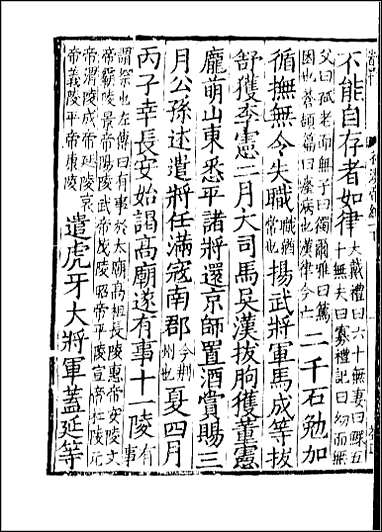 不能自存者如律大戴禮曰六十無妻曰鰥五十無夫曰寡禮記曰幼而無
父曰孤老而無子曰獨爾雅曰篤困也蒼頡篇曰癃病也漢律今亡二千石勉加
循撫無令失職職猶常也揚武將軍馬成等拔
舒獲李憲二月大司馬吳漢拔朐獲董憲
龐萌山東悉平諸將還京師置酒賞賜三
月公孫述遣將任滿寇南郡今荊州也夏四月
丙子幸長安始謁高廟遂有事十一陵有事
謂祭也左傳曰有事於太廟高祖長陵惠帝安陵文帝霸陵景帝陽陵武帝茂陵昭帝平陵宣帝杜陵元
帝渭陵成帝延陵哀帝義陵平帝康陵遣虎牙大將軍蓋延等